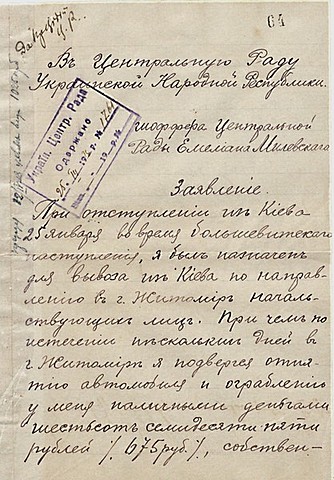 64
Въ Центральную Раду
Украинской Народной Республики.
шоффера Центральной
Рады Емелiана Милевскаго
Заявленiе.
При отступленiи изъ Кiева
25 января во время большевитскаго
наступленiя, я былъ назначенъ
для вывоза изъ Кiева по направ-
ленiю въ г. Житомiръ началь-
ствующихъ лицъ. При чемъ по
истеченiи нѣсколькихъ дней въ
г. Житомiрѣ я подвергся отня-
тiю автомобиля и ограбленiю
у меня наличными деньгами
шестьсотъ семидесяти пяти
рублей /675 руб./, собствен-
Україн. Центр. Рада
Одержано